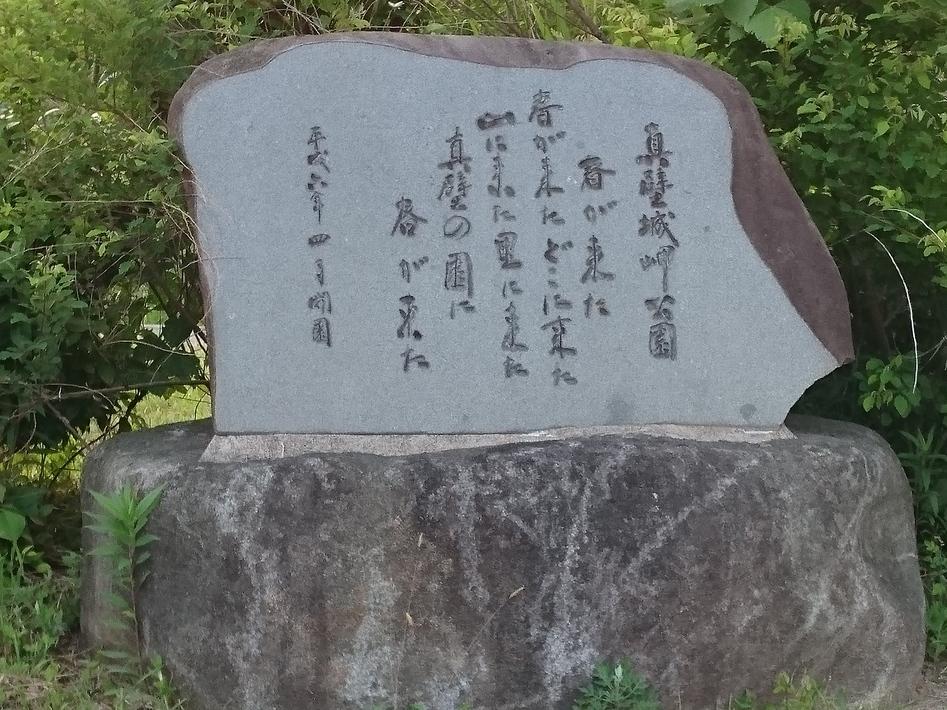 真壁城岬公園
春が来た
春が来たどこに来た
山に来た里に来た
真壁の園に
春が来た
平成六年四月開園